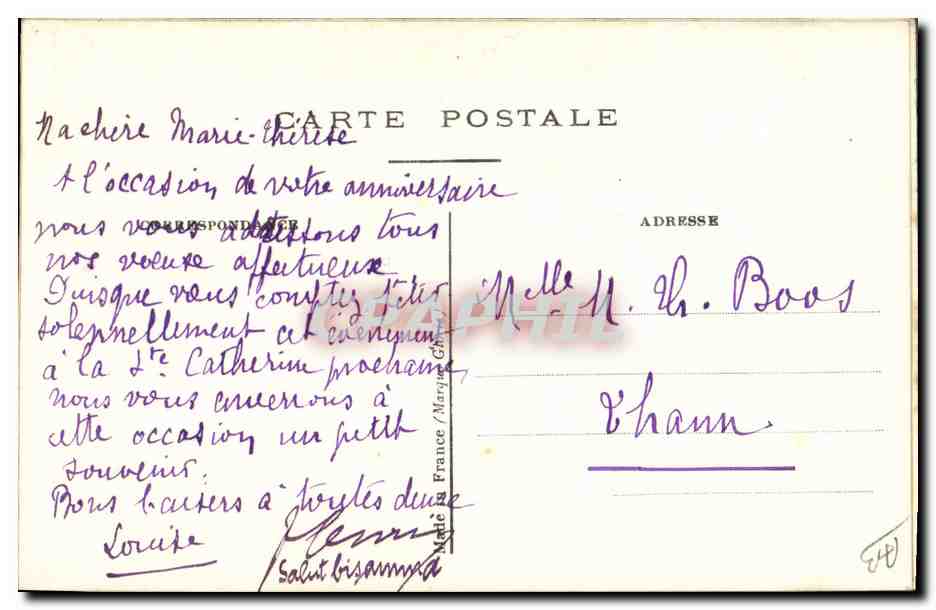 CARTE POSTALE
Ma chère Marie-Thérèse
A l'occasion de votre anniversaire
CORRESPONDANCE
nous vous adressons tous
nos voeuxe affectueuxe
Puisque vous comptez fêter
solennellement cet évènement
à la Ste Catherine prochaine,
nous vous enverrons à
cette occasion un petit
souvenir.
Bons baisers à toutes deuxe
Louise
Henri
Salut
Made in France (Marque
ADRESSE
Mlle M. Th. Boos
Thann.
CPAPHIL